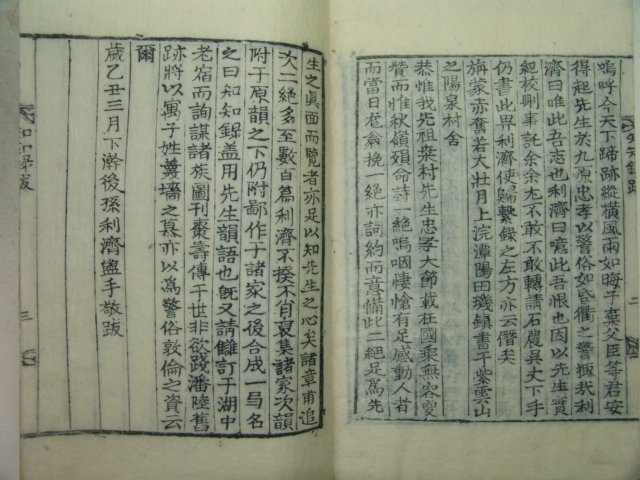 嗚呼今天下蹄跡縱橫風雨如晦子棄父臣等君安
得祖先生於九原忠孝以警俗如昏衢之警摑㦲利
濟曰唯此吾志也利濟曰噫此吾恨也因以先生實
紀校刪事託余余尤不敢不敢轉請石農吳丈下手
仍書此畀利濟使歸繫錄之左方亦云僭矣
旃蒙赤奮若大壯月上浣潭陽田璣鎮書于紫雲山
之陽泉村舍
恭惟我先祖村先生忠孝大節載在國乘無容更
贊而惟秋嶺頒命詩一絕嗚咽悽愴有足感動人者
而當日忍翁挽一絕亦詞約而意備此二絕足爲先
生之眞面而覽者亦足以知先生之心矣諸章甫追
次二絕多至數百篇利濟不揆不肖裒集諸家次韻
附于原韻之下仍附鄙作于諸家之後合成一弓名
之曰知知錄盖用先生韻語也旣又請讎訂于湖中
老宿而詢謀諸族圖刊棗壽傳于世非欲踐潘陸舊
跡將以寓子姓羹墻之慕亦以爲警俗敦倫之資云
爾
歲乙丑三月下澣後孫利濟盥手敬跋
知知錄跋
三